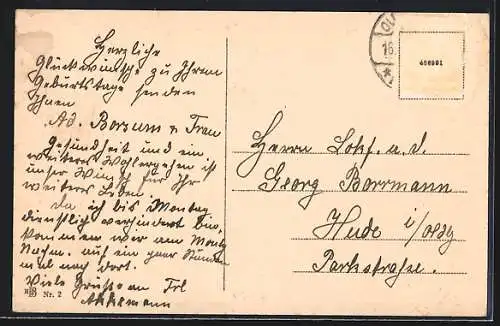 Herzliche
Glückwünsche zu Ihrem
Geburtstage senden
Ihnen
Ad. Borsum u Frau
Gesundheit und ein
weiteres Wohlergehen ist
unser Wunsch für Ihr
weiteres Leben.
Da ich bis Montag
dienstlich verhindert bin,
kommen wir am Mont
Nachm. auf ein paar Stunden
mal nach dort.
Viele Grüsse an Frl
Akkermann
Nr. 2
16.
Herrn Lokf. a. d.
Georg Borrmann
Hude i/Oldg
Parkstraße.